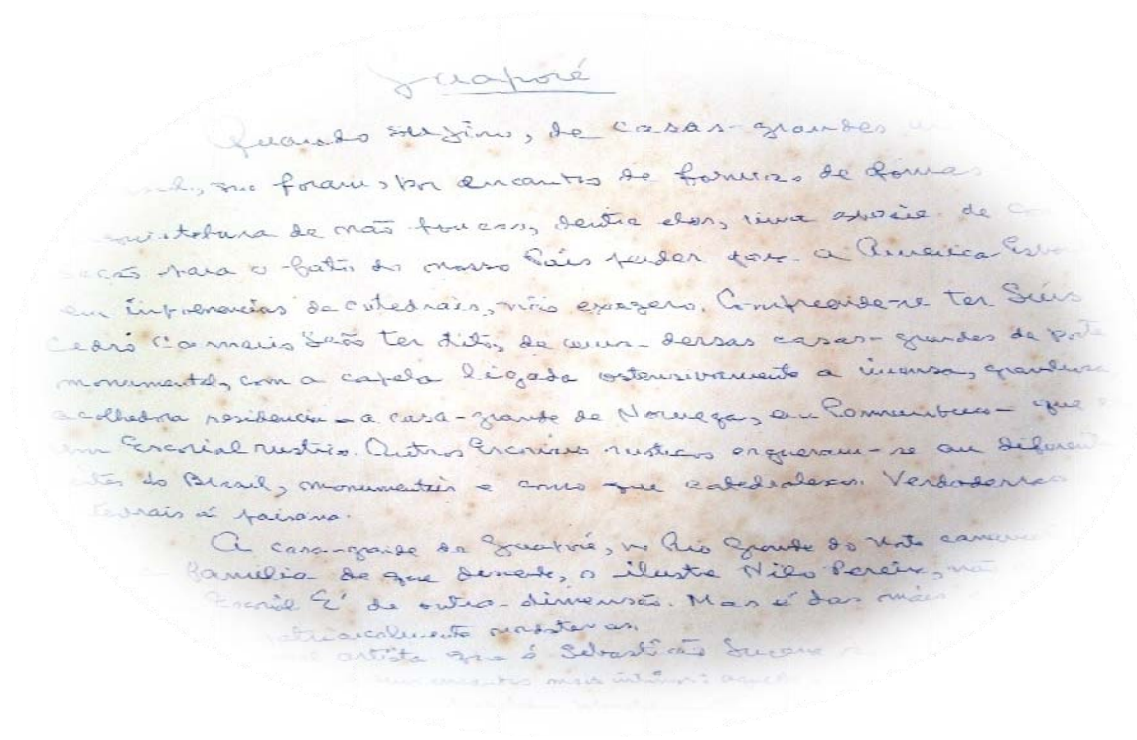 Guaporé
Quando sugiro, de casas-grandes
que foram, por encantos de de formas
de não poucas, dentre elas, uma espécie de
para o fato do nosso País perder para a America
em imponencias de catedrais, não exagero. Compreende-se ter Luís
Cedro Carneiro Leão ter dito, de uma dessas casas-grandes de porte
monumental, com a capela ligada ostensivamente a imensa,
acolhedora residencia - a casa-grande de Noruega, em Pernambuco - que
um Escorial rustico. Outros Escoriais rusticos ergueram-se em
do Brasil, monumentais e como que catedralescos. Verdadeiras
à paisana.
A casa-grande de Guaporé, no Rio Grande do Norte
familia de que descende, o ilustre Nilo Pereira, não
Escorial É de outra dimensão. Mas é das mais
artista que é Sebastião
mais intimos: